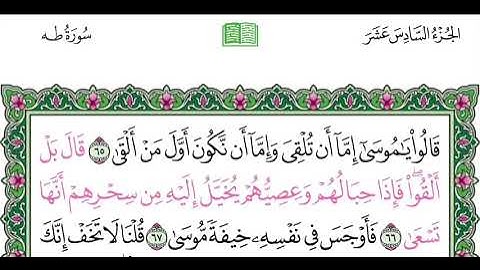 الجُزْءُ السَّادِسَ عَشَرَ
سُورَةُ طه
قَالُواْ يَٰمُوسَىٰٓ إِمَّآ أَن تُلْقِىَ وَإِمَّآ أَن نَّكُونَ أَوَّلَ مَنْ أَلْقَىٰ ٦٥ قَالَ بَلْ
أَلْقُواْۖ فَإِذَا حِبَالُهُمْ وَعِصِيُّهُمْ يُخَيَّلُ إِلَيْهِ مِن سِحْرِهِمْ أَنَّهَا
تَسْعَىٰ ٦٦ فَأَوْجَسَ فِى نَفْسِهِۦ خِيفَةً مُّوسَىٰ ٦٧ قُلْنَا لَا تَخَفْ إِنَّكَ